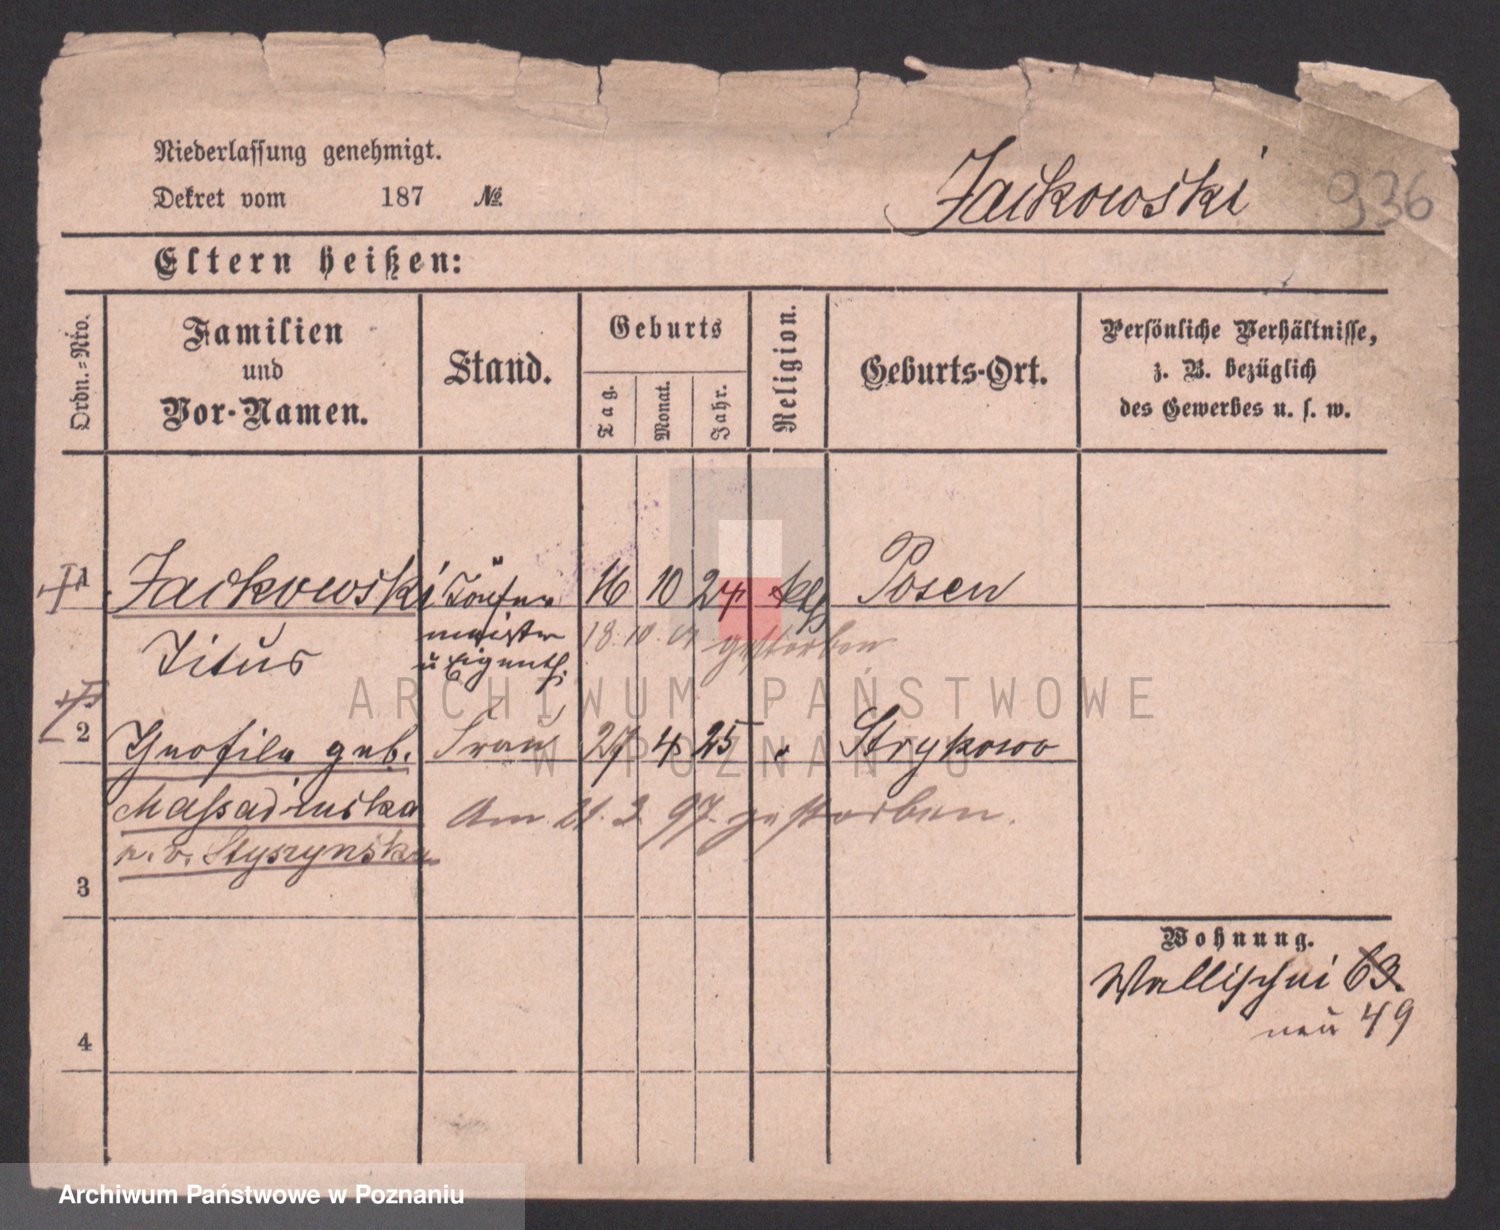 Niederlassung genehmigt.
Dekret vom 187 №
Jackowski 936
Eltern heißen:
Ordn.-Nro.
Familien
und
Vor-Namen.
Stand.
Geburts
Tag.
Monat.
Jahr.
Religion.
Geburts-Ort.
Persönliche Verhältnisse,
z. B. bezüglich
des Gewerbes u. s. w.
1 Jackowski Töpfer 16 10 24 kth Posen
Titus meister 18. 10. gestorben
u Eigenth.
ARCHIWUM PAŃSTWOWE
W POZNANIU
2 Theofila geb. Frau 27 4 25 Strykowo
Am 21. 3. 97. gestorben.
v. Styszynska
3
Wohnung.
Wallischei 63
neu 49
4
Archiwum Państwowe w Poznaniu